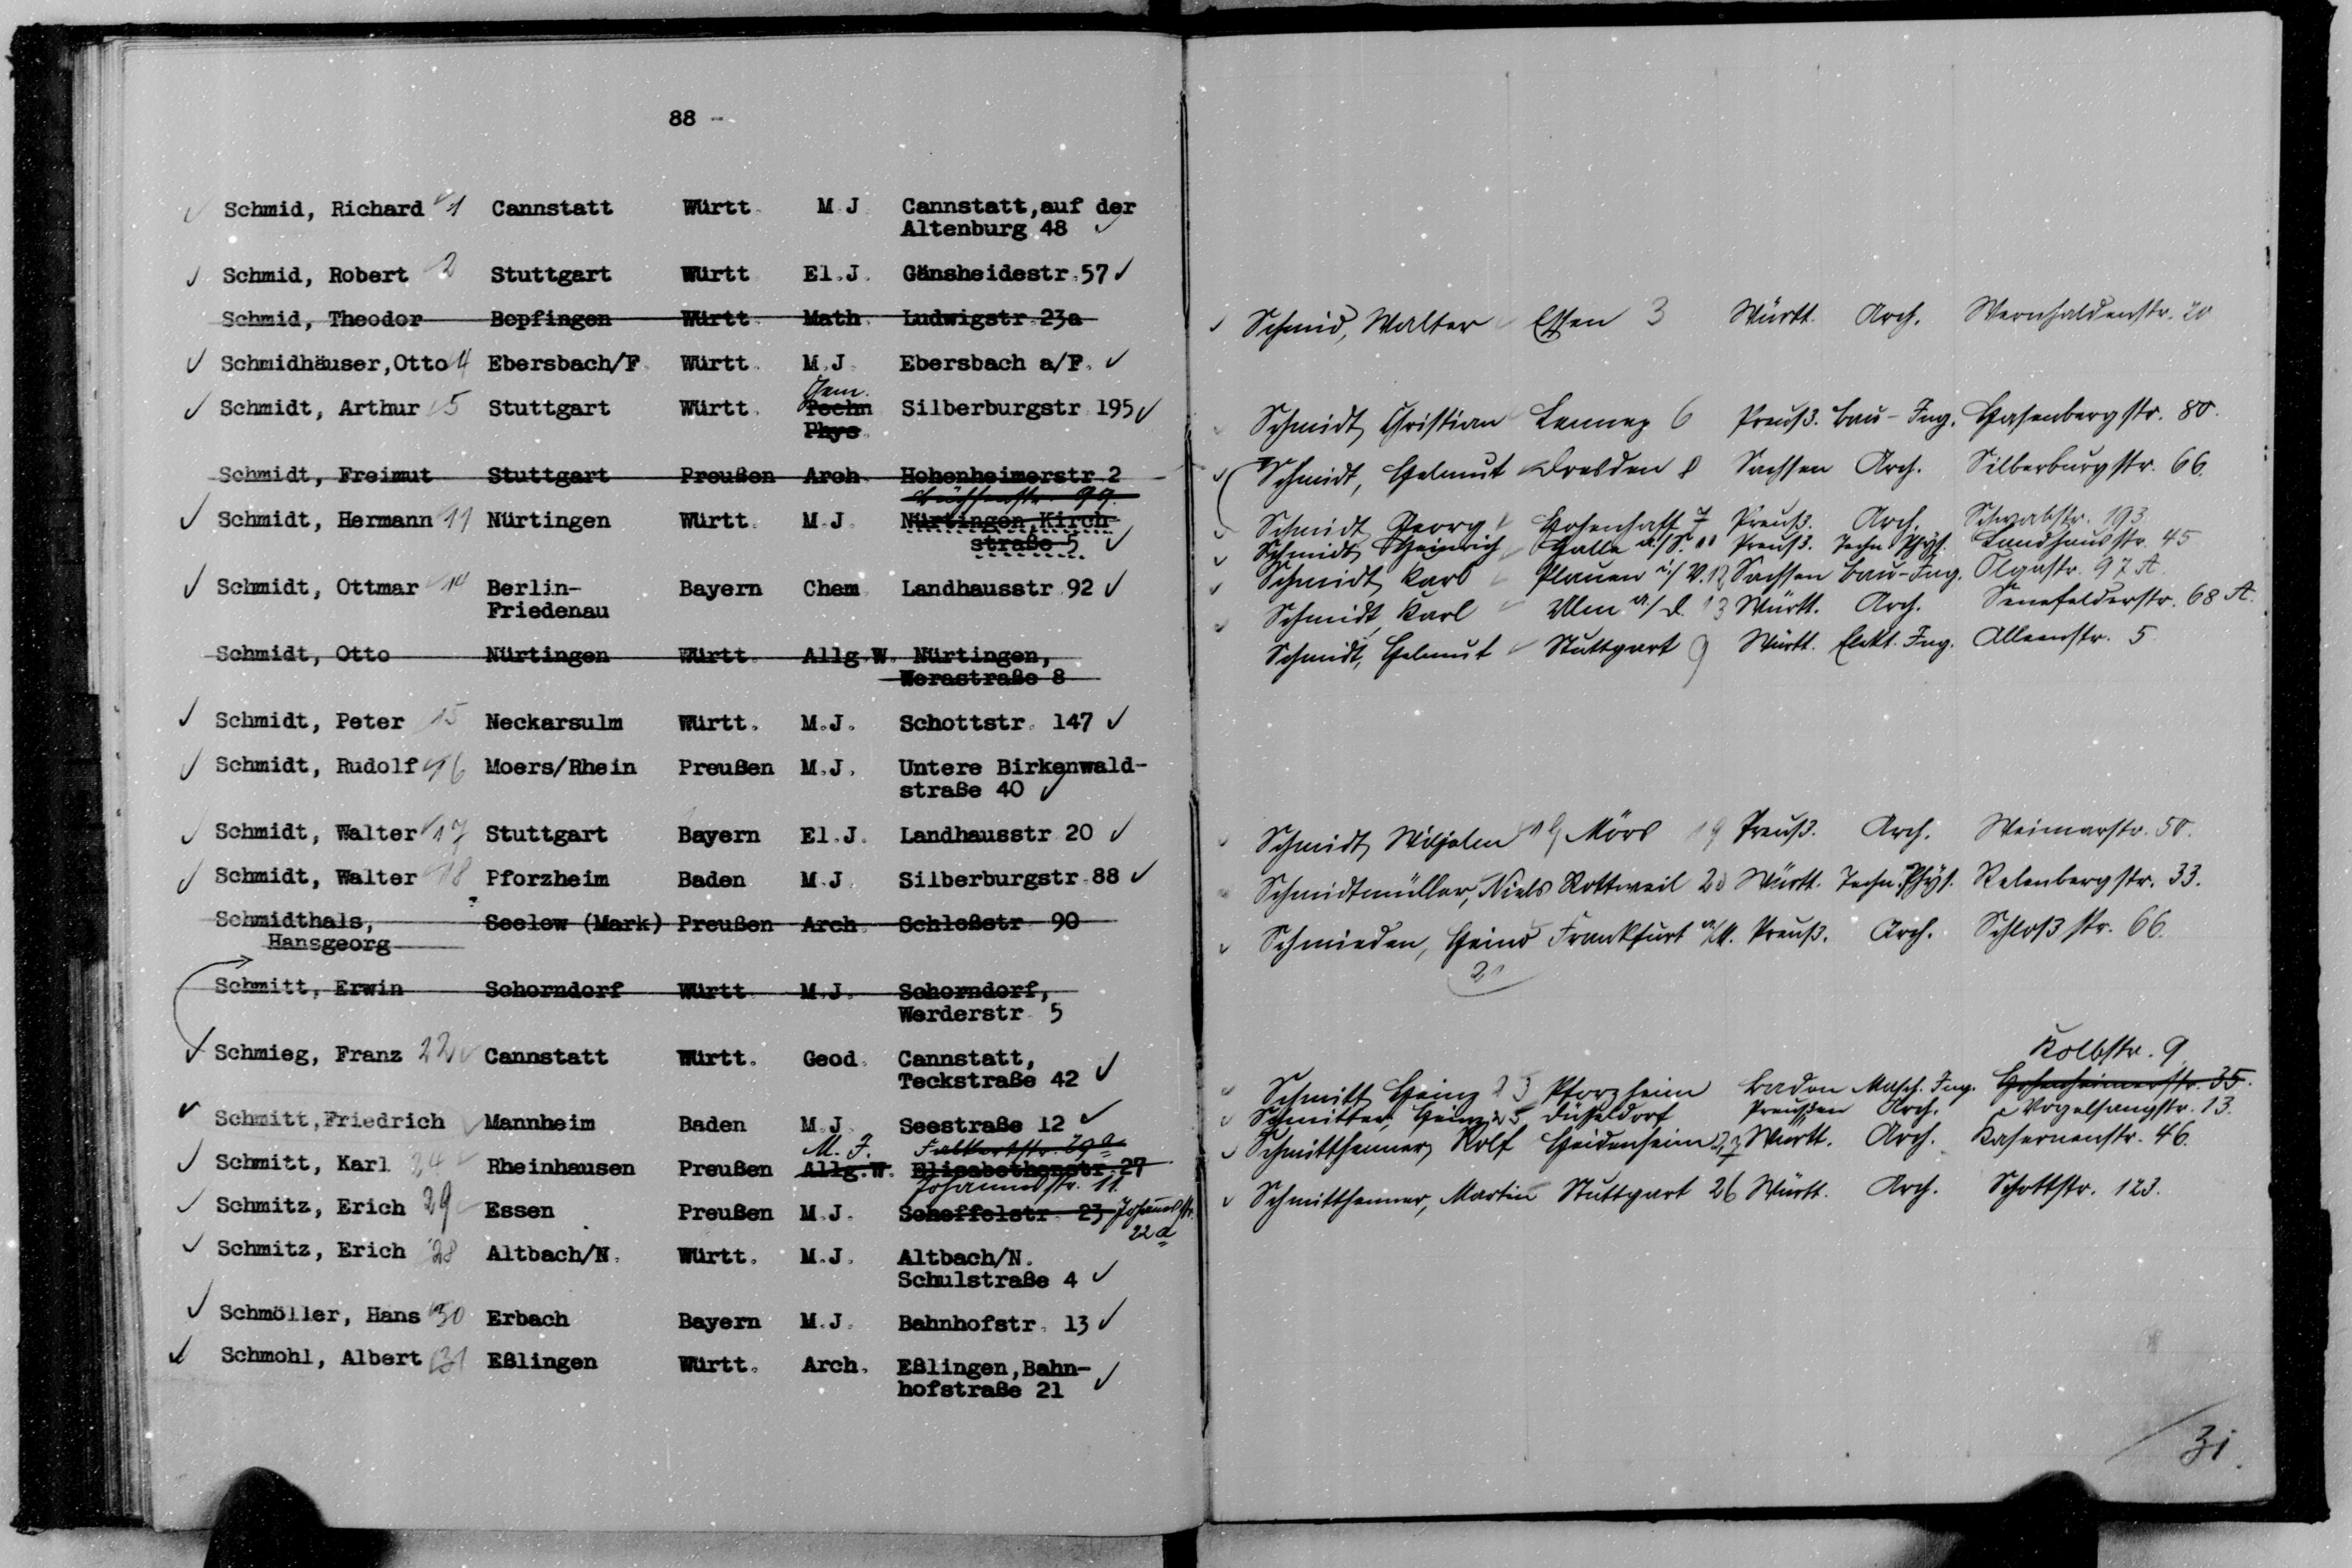 88 -
✓ Schmid, Richard ✓ 1 Cannstatt Württ. M.J. Cannstatt, auf der
Altenburg 48 ✓
✓ Schmid, Robert ✓ 2 Stuttgart Württ. El.J. Gänsheidestr. 57 ✓
Schmid, Theodor Bopfingen Württ. Math. Ludwigstr. 23a
✓ Schmidhäuser, Otto 4 Ebersbach/F. Württ. M.J. Ebersbach a/F. ✓
Chem.
✓ Schmidt, Arthur ✓ 5 Stuttgart Württ. Techn Silberburgstr. 195 ✓
Phys.
Schmidt, Freimut Stuttgart Preußen Arch. Hohenheimerstr. 2
Büchsenstr. 99.
✓ Schmidt, Hermann 11 Nürtingen Württ. M.J. Nürtingen, Kirch-
straße 5 ✓
✓ Schmidt, Ottmar ✓ 14 Berlin- Bayern Chem. Landhausstr. 92 ✓
Friedenau
Schmidt, Otto Nürtingen Württ. Allg.W. Nürtingen,
Werastraße 8
✓ Schmidt, Peter 15 Neckarsulm Württ. M.J. Schottstr. 147 ✓
✓ Schmidt, Rudolf ✓ 16 Moers/Rhein Preußen M.J. Untere Birkenwald-
straße 40 ✓
✓ Schmidt, Walter ✓ 17 Stuttgart Bayern El.J. Landhausstr. 20 ✓
✓ Schmidt, Walter ✓ 18 Pforzheim Baden M.J. Silberburgstr. 88 ✓
Schmidthals, Seelow (Mark) Preußen Arch. Schloßstr. 90
Hansgeorg
Schmitt, Erwin Schorndorf Württ. M.J. Schorndorf,
Werderstr. 5
✓ Schmieg, Franz 22 ✓ Cannstatt Württ. Geod. Cannstatt,
Teckstraße 42 ✓
✓ Schmitt, Friedrich ✓ Mannheim Baden M.J. Seestraße 12 ✓
M. J. Falkertstr. 29a
✓ Schmitt, Karl 24 ✓ Rheinhausen Preußen Allg.W. Elisabethenstr. 27
Johannesstr. 11.
✓ Schmitz, Erich 29 ✓ Essen Preußen M.J. Scheffelstr. 23 Johannesstr.
22 a
✓ Schmitz, Erich 28 Altbach/N. Württ. M.J. Altbach/N.
Schulstraße 4 ✓
✓ Schmöller, Hans ✓ 30 Erbach Bayern M.J. Bahnhofstr. 13 ✓
✓ Schmohl, Albert 31 Eßlingen Württ. Arch. Eßlingen, Bahn-
hofstraße 21 ✓
✓ Schmid, Walter ✓ Essen 3 Württ. Arch. Wernhaldenstr. 20
✓ Schmidt, Christian Lennep 6 Preuß. Bau-Ing. Hasenbergstr. 80.
✓ Schmidt, Helmut ✓ Dresden 8 Sachsen Arch. Silberburgstr. 66.
✓ Schmidt, Georg ✓ 7 Preuß. Arch. Schwabstr. 193
✓ Schmidt, Heinrich ✓ Halle a./S. 10 Preuß. Techn. Phys. Landhausstr. 45
✓ Schmidt, Karl ✓ Plauen i./V. 12 Sachsen Bau-Ing. Olgastr. 97 A.
✓ Schmidt, Karl ✓ Ulm a./D. 13 Württ. Arch. Senefelderstr. 68 A.
Schmidt, Helmut ✓ Stuttgart 9 Württ. Elekt. Ing. Alleenstr. 5
✓ Schmidt, Wilhelm 19 Mörs 19 Preuß. Arch. Weimarstr. 50.
Schmidtmüller, Niels Rottweil 20 Württ. Techn. Phys. Relenbergstr. 33.
✓ Schmieden, Heinz Frankfurt a/M. Preuß. Arch. Schloßstr. 66.
21
Kolbstr. 9
✓ Schmitt, Heinz 23 Pforzheim Baden Masch. Ing. Hohenheimerstr. 35.
✓ Schmitter, Heinz 25 Düsseldorf Preußen Arch. Vogelsangstr. 13.
✓ Schmitthenner, Rolf Heidenheim 27 Württ. Arch. Kasernenstr. 46.
✓ Schmitthenner, Martin Stuttgart 26 Württ. Arch. Schottstr. 123.
31.